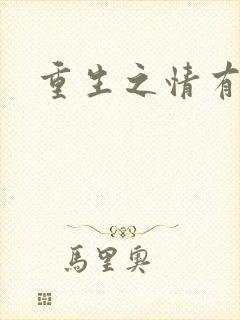 重生之情有
馬里奧